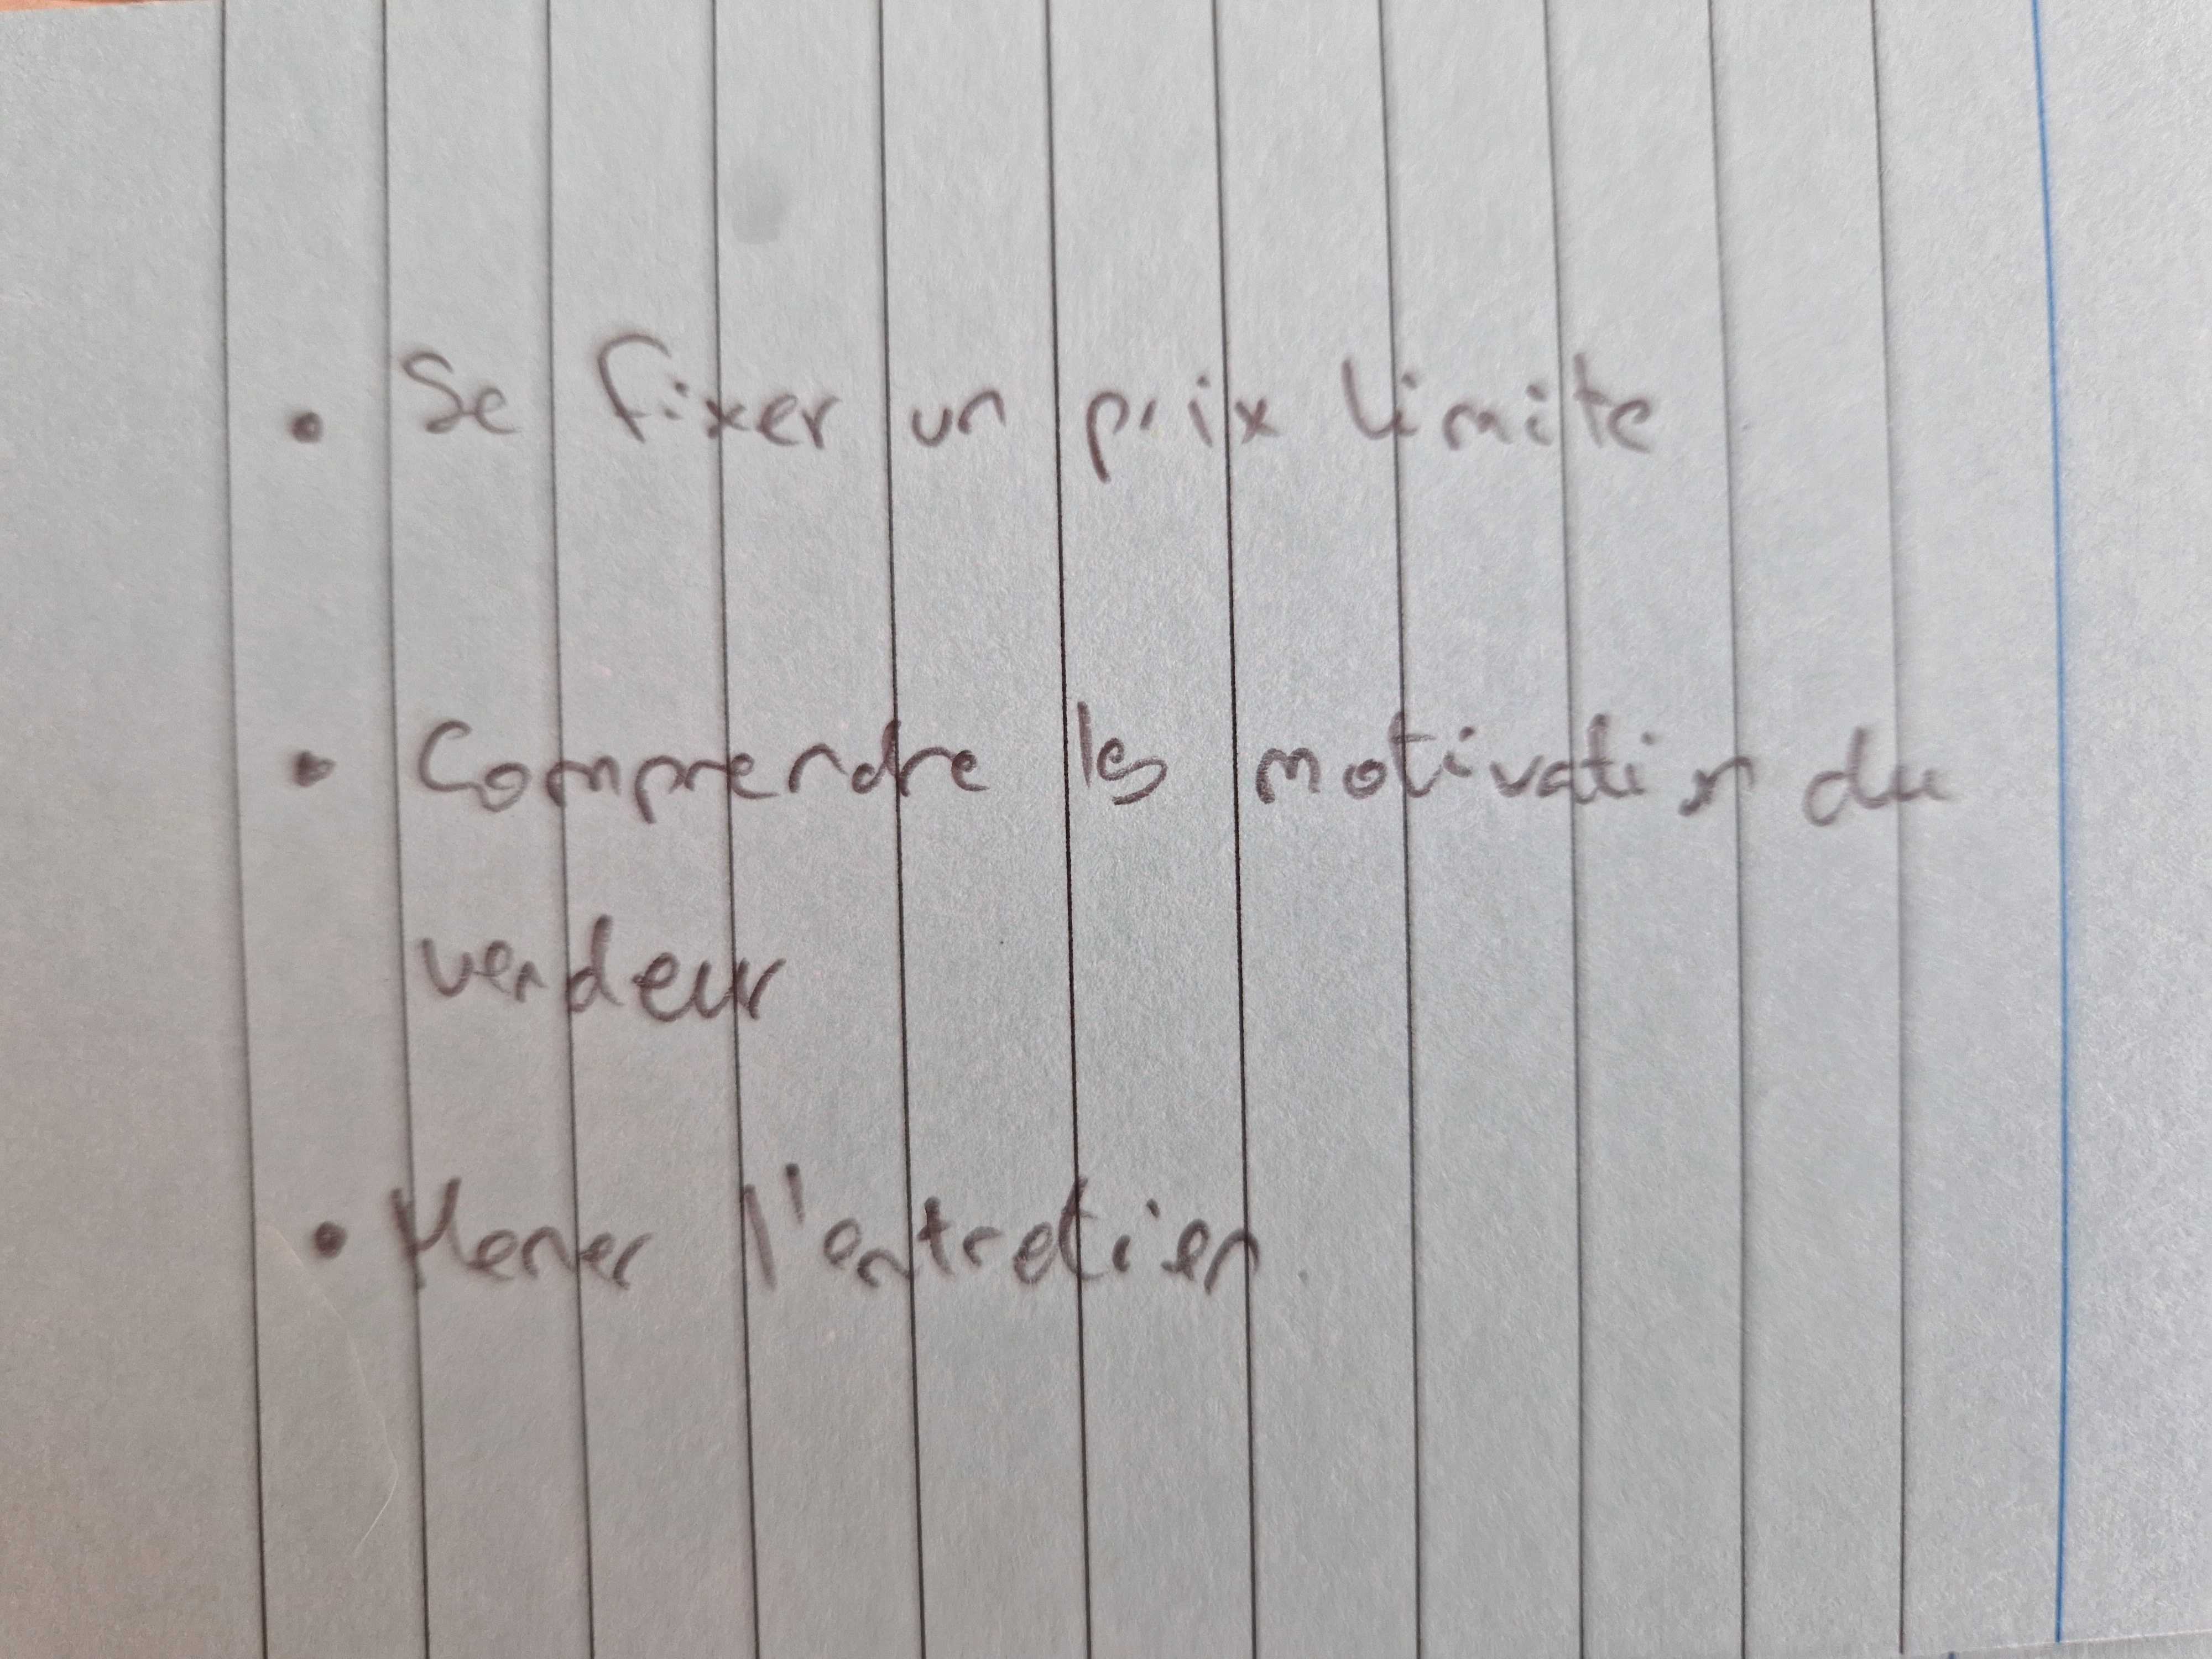 • Se fixer un prix limite
• Comprendre les motivation du
vendeur
• Mener l'entretien.